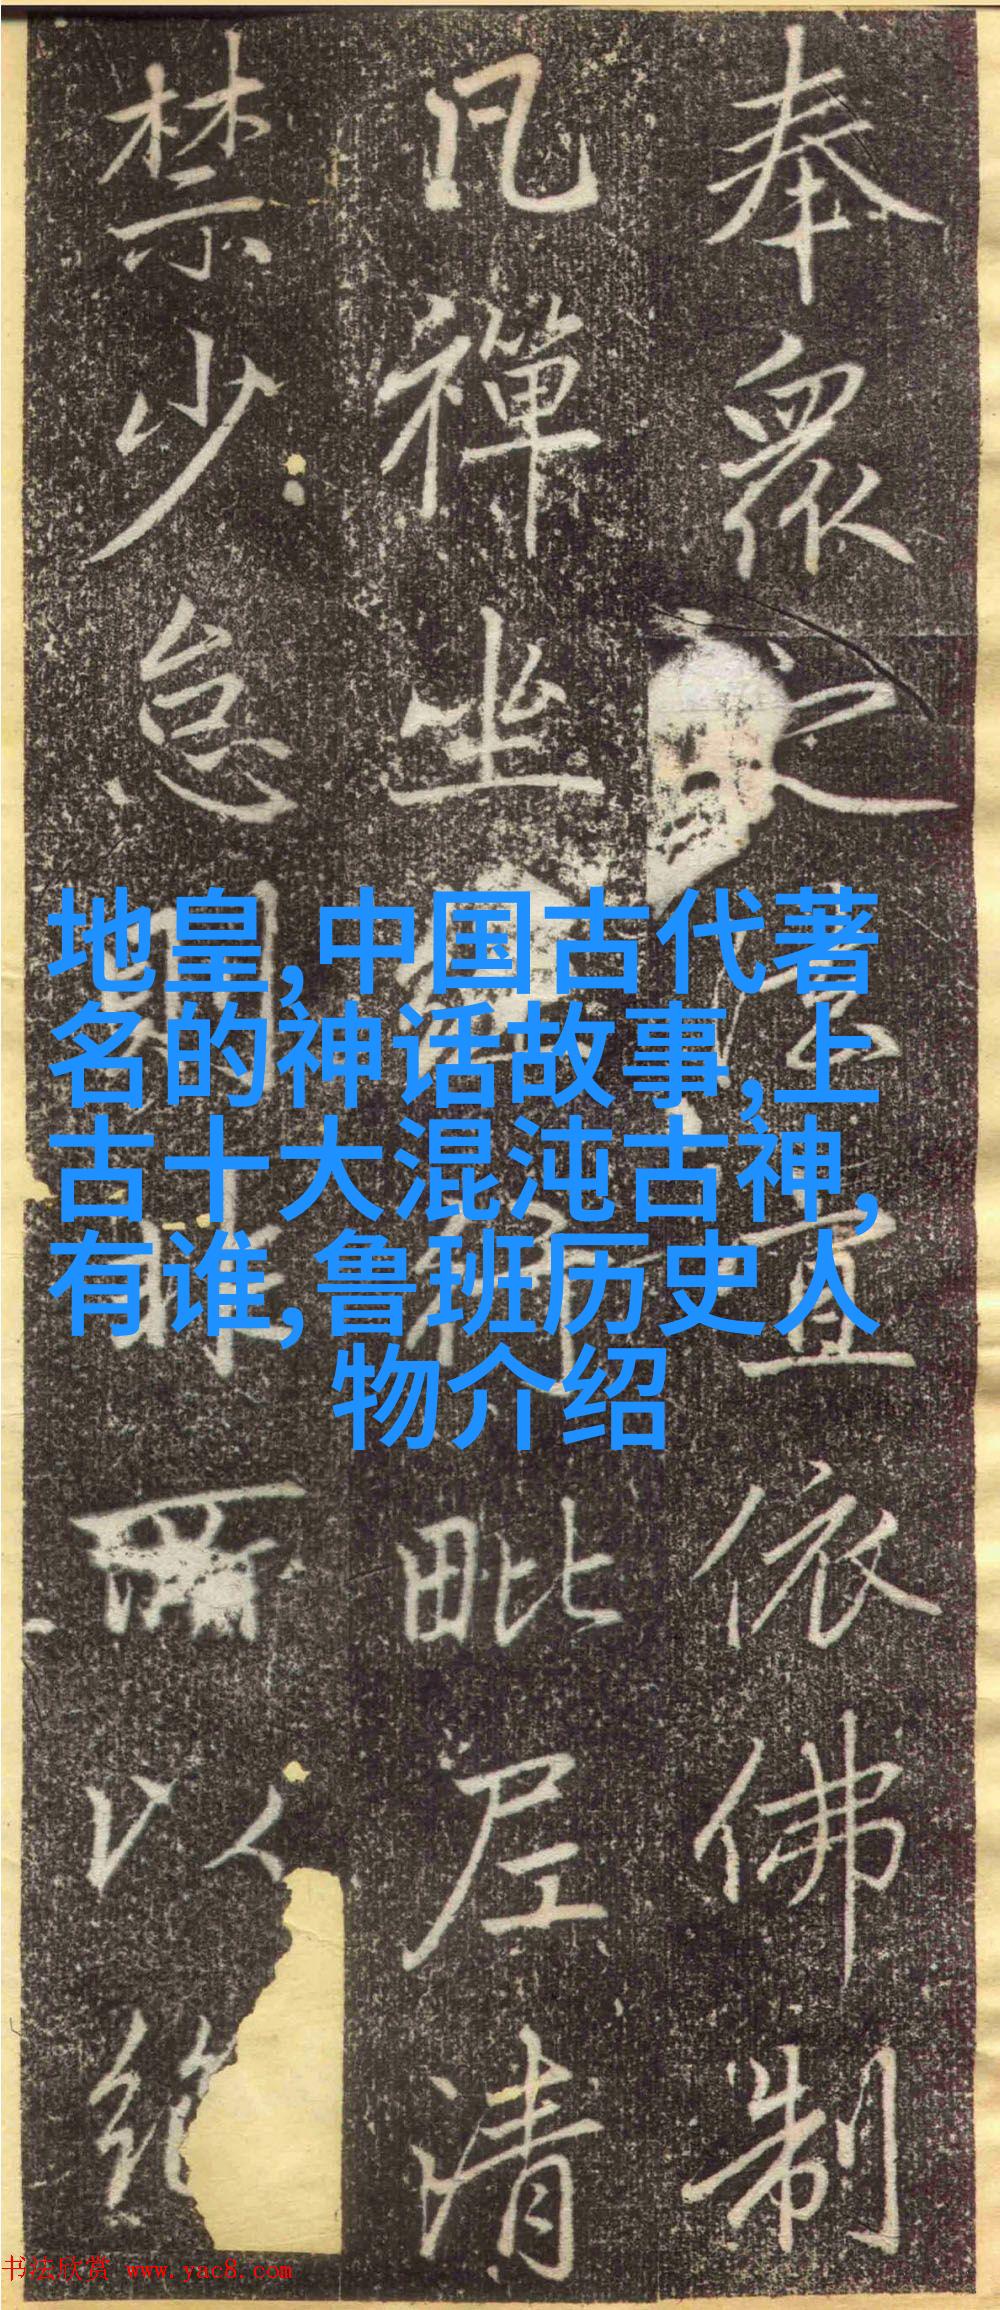 奉眾之
宜依佛制
凡禪坐
毗尼清
禁少怠
以絕
地皇,中国古代著
名的神话故事,上
古十大混沌古神,
有谁,鲁班历史人
物介绍
书法欣赏 www.yac8.com